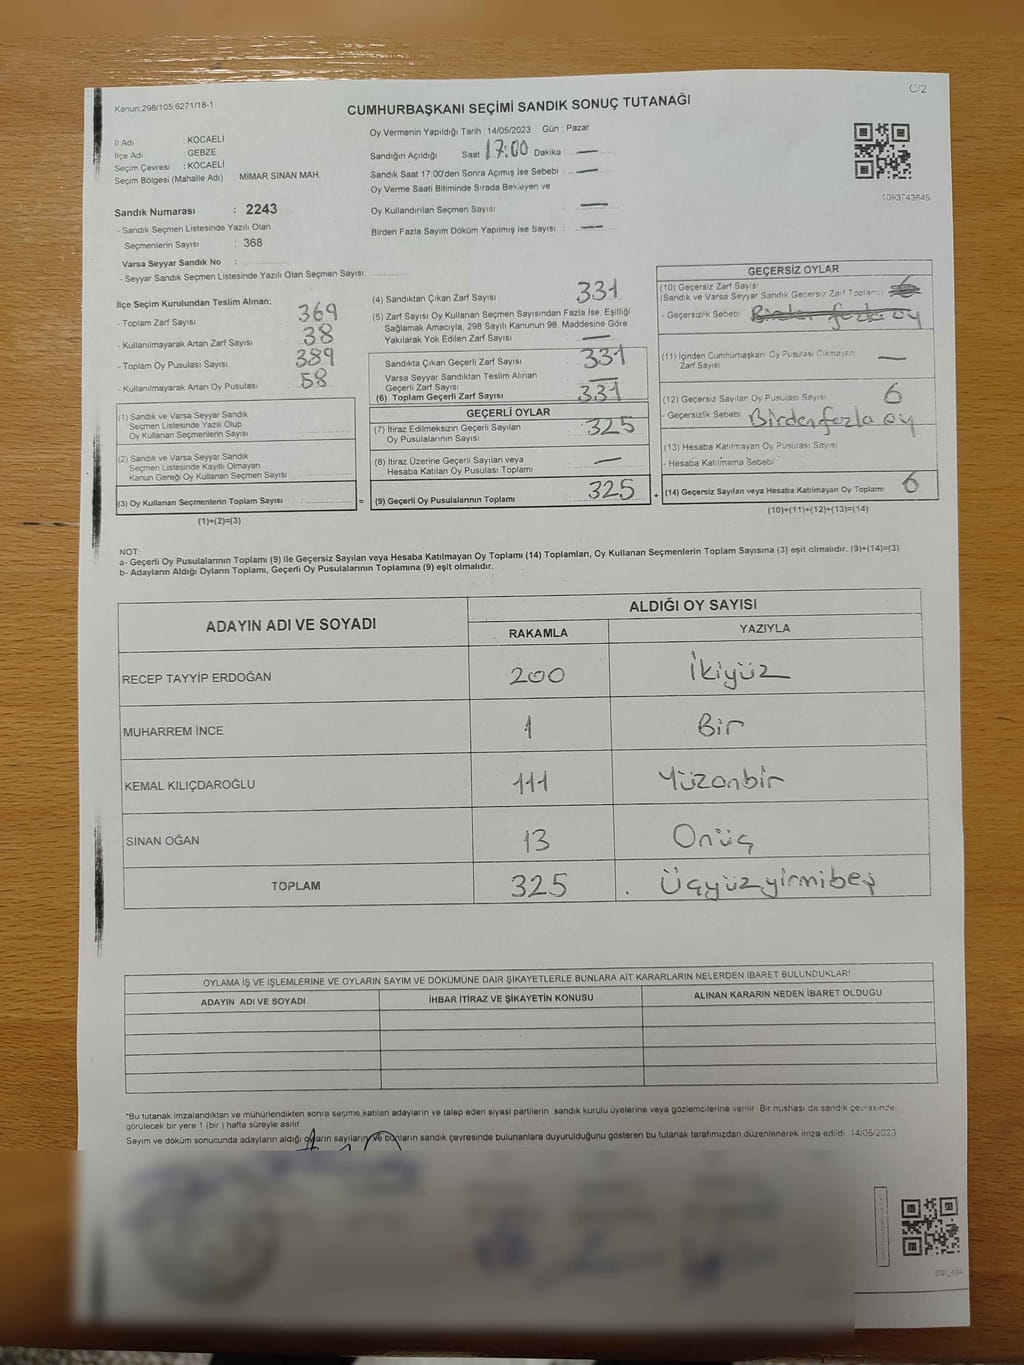 Kanun:298/105,6271/18-1
C/2
CUMHURBAŞKANI SEÇİMİ SANDIK SONUÇ TUTANAĞI
İl Adı : KOCAELİ
İlçe Adı : GEBZE
Seçim Çevresi : KOCAELİ
Seçim Bölgesi (Mahalle Adı) : MİMAR SİNAN MAH.
Sandık Numarası : 2243
- Sandık Seçmen Listesinde Yazılı Olan
Seçmenlerin Sayısı : 368
Varsa Seyyar Sandık No :
- Seyyar Sandık Seçmen Listesinde Yazılı Olan Seçmen Sayısı:
Oy Vermenin Yapıldığı Tarih : 14/05/2023 Gün : Pazar
Sandığın Açıldığı Saat 17:00 Dakika : —
Sandık Saat 17.00'den Sonra Açımış İse Sebebi : —
Oy Verme Saati Bitiminde Sırada Bekleyen ve
Oy Kullandırılan Seçmen Sayısı : —
Birden Fazla Sayım Döküm Yapılmış İse Sayısı : —
1093743845
İlçe Seçim Kurulundan Teslim Alınan;
- Toplam Zarf Sayısı : 369
- Kullanılmayarak Artan Zarf Sayısı : 38
- Toplam Oy Pusulası Sayısı : 389
- Kullanılmayarak Artan Oy Pusulası : 58
(1) Sandık ve Varsa Seyyar Sandık
Seçmen Listesinde Yazılı Olup
Oy Kullanan Seçmenlerin Sayısı
(2) Sandık ve Varsa Seyyar Sandık
Seçmen Listesinde Kayıtlı Olmayan
Kanun Gereği Oy Kullanan Seçmen Sayısı
(3) Oy Kullanan Seçmenlerin Toplam Sayısı =
(1)+(2)=(3)
(4) Sandıktan Çıkan Zarf Sayısı 331
(5) Zarf Sayısı Oy Kullanan Seçmen Sayısından Fazla İse, Eşitliği
Sağlamak Amacıyla, 298 Sayılı Kanunun 98. Maddesine Göre
Yakılarak Yok Edilen Zarf Sayısı —
Sandıkta Çıkan Geçerli Zarf Sayısı 331
Varsa Seyyar Sandıktan Teslim Alınan
Geçerli Zarf Sayısı —
(6) Toplam Geçerli Zarf Sayısı 331
GEÇERLİ OYLAR
(7) İtiraz Edilmeksizin Geçerli Sayılan
Oy Pusulalarının Sayısı 325
(8) İtiraz Üzerine Geçerli Sayılan veya
Hesaba Katılan Oy Pusulası Toplamı —
(9) Geçerli Oy Pusulalarının Toplamı 325 +
GEÇERSİZ OYLAR
(10) Geçersiz Zarf Sayısı
(Sandık ve Varsa Seyyar Sandık Geçersiz Zarf Toplamı) 6
- Geçersizlik Sebebi : Birden fazla oy
(11) İçinden Cumhurbaşkanı Oy Pusulası Çıkmayan
Zarf Sayısı —
(12) Geçersiz Sayılan Oy Pusulası Sayısı 6
- Geçersizlik Sebebi Birden fazla oy
(13) Hesaba Katılmayan Oy Pusulası Sayısı
- Hesaba Katılmama Sebebi
(14) Geçersiz Sayılan veya Hesaba Katılmayan Oy Toplamı 6
(10)+(11)+(12)+(13)=(14)
NOT:
a- Geçerli Oy Pusulalarının Toplamı (9) ile Geçersiz Sayılan veya Hesaba Katılmayan Oy Toplamı (14) Toplamları, Oy Kullanan Seçmenlerin Toplam Sayısına (3) eşit olmalıdır. (9)+(14)=(3)
b- Adayların Aldığı Oyların Toplamı, Geçerli Oy Pusulalarının Toplamına (9) eşit olmalıdır.
ADAYIN ADI VE SOYADI
ALDIĞI OY SAYISI
RAKAMLA YAZIYLA
RECEP TAYYİP ERDOĞAN 200 İkiyüz
MUHARREM İNCE 1 Bir
KEMAL KILIÇDAROĞLU 111 Yüzonbir
SİNAN OĞAN 13 Onüç
TOPLAM 325 Üçyüzyirmibeş
OYLAMA İŞ VE İŞLEMLERİNE VE OYLARIN SAYIM VE DÖKÜMÜNE DAİR ŞİKAYETLERLE BUNLARA AİT KARARLARIN NELERDEN İBARET BULUNDUKLARI
ADAYIN ADI VE SOYADI İHBAR İTİRAZ VE ŞİKAYETİN KONUSU ALINAN KARARIN NEDEN İBARET OLDUĞU
*Bu tutanak imzalandıktan ve mühürlendikten sonra seçime katılan adayların ve talep eden siyasi partilerin sandık kurulu üyelerine veya gözlemcilerine verilir. Bir nüshası da sandık çevresinde
görülecek bir yere 1 (bir ) hafta süreyle asılır.
Sayım ve döküm sonucunda adayların aldığı oyların sayılarını ve bunların sandık çevresinde bulunanlara duyurulduğunu gösteren bu tutanak tarafımızdan düzenlenerek imza edildi. 14/05/2023